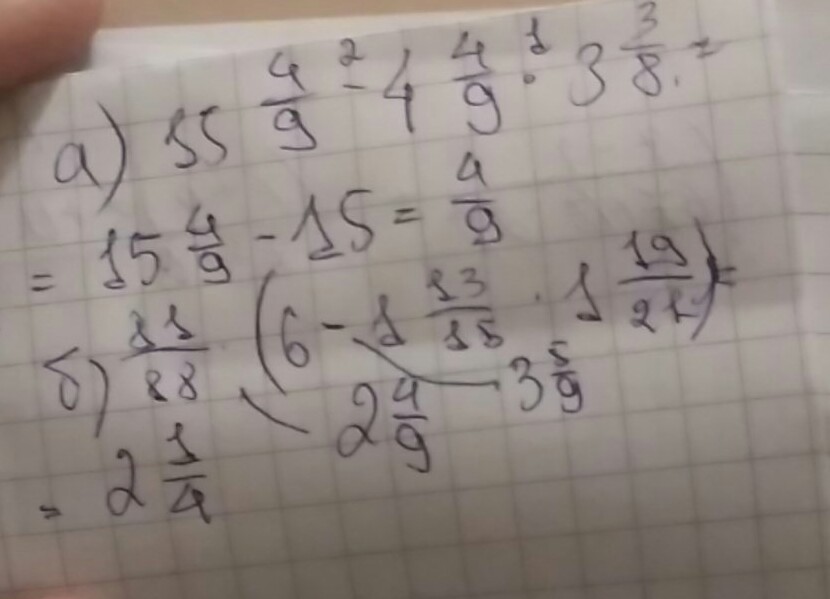 а) 15 4/9 -² 4 4/9 ·¹ 3 3/8 =
= 15 4/9 - 15 = 4/9
б) 81/88 (6 - 1 13/15 · 1 19/21) =
2 4/9 3 5/9
= 2 1/4